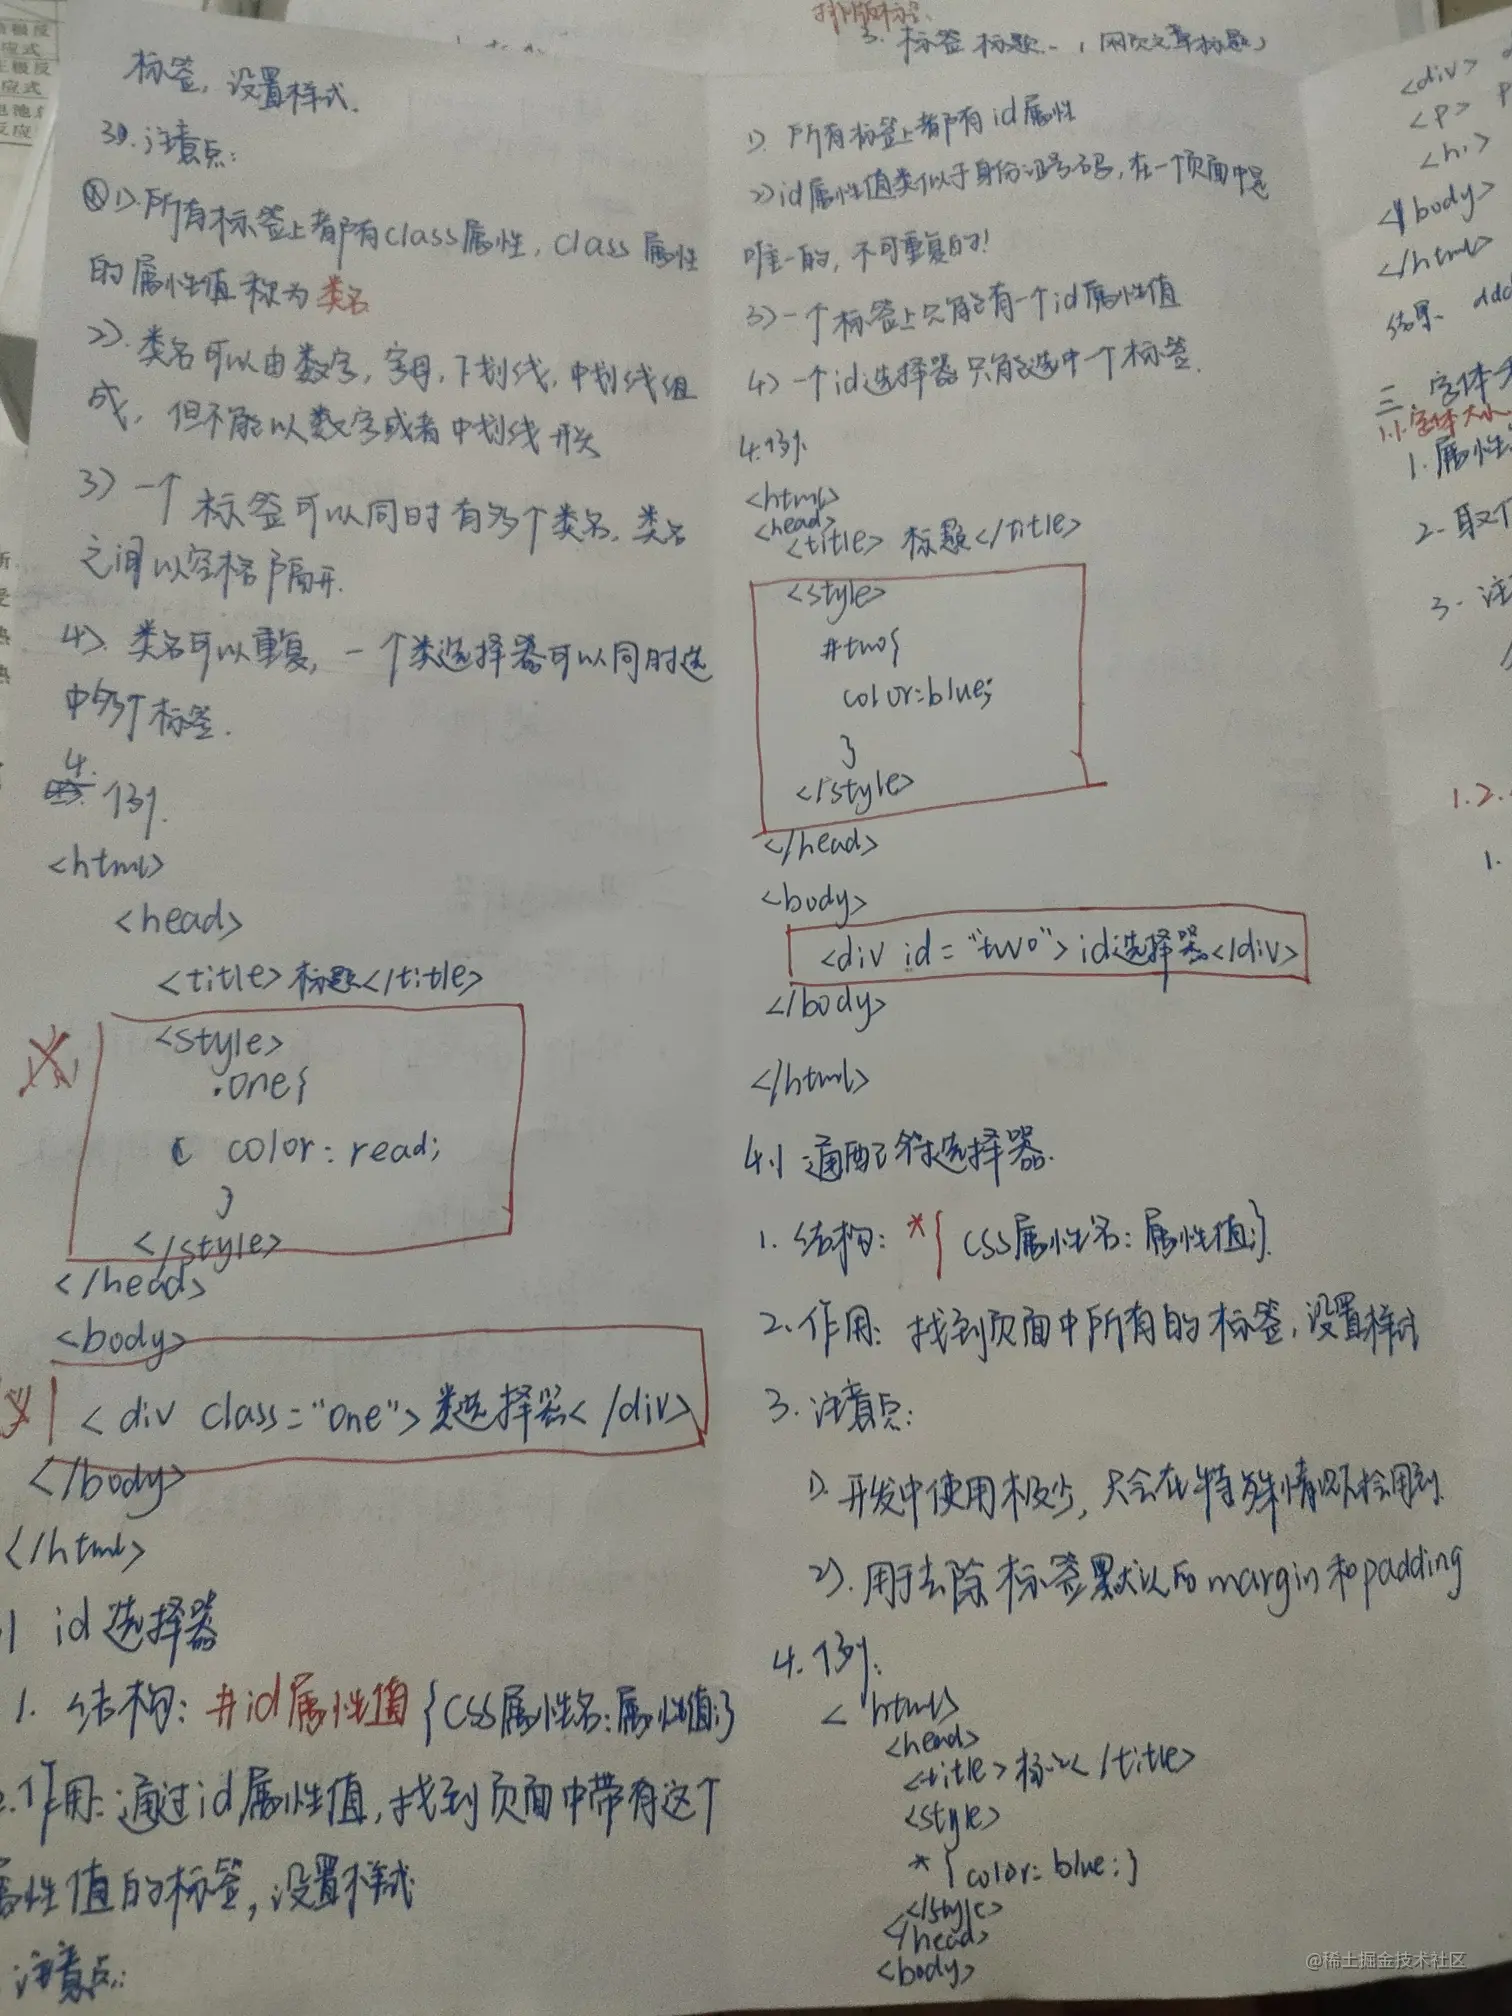 标签,设置样式.
3). 注意点:
1).所有标签上都有class属性, class属性
的属性值称为类名
2). 类名可以由数字,字母,下划线,中划线组
成,但不能以数字或者中划线开头
3) 一个标签可以同时有多个类名,类名
之间以空格隔开.
4). 类名可以重复,一个类选择器可以同时选
中多个标签.
4.
例.
<html>
<head>
<title>标题</title>
<style>
.one{
color: read;
}
</style>
</head>
<body>
<div class="one">类选择器</div>
</body>
</html>
id选择器
1. 结构: #id属性值{CSS属性名:属性值;}
作用: 通过id属性值,找到页面中带有这个
属性值的标签,设置样式
注意点:
3. 标签标题
1). 所有标签上都有id属性
2)id属性值类似于身份证号码,在一个页面中是
唯一的,不可重复的!
3)一个标签上只能有一个id属性值
4)一个id选择器只能选中一个标签.
4.例.
<html>
<head>
<title>标题</title>
<style>
#two{
color:blue;
}
</style>
</head>
<body>
<div id="two">id选择器</div>
</body>
</html>
4.1 通配符选择器.
1. 结构: *{CSS属性名:属性值;}.
2.作用: 找到页面中所有的标签,设置样式
3.注意点:
1). 开发中使用极少,只会在特殊情况下才会用到.
2). 用于去除标签默认的margin和padding
4. 例:
<html>
<head>
<title>标</title>
<style>
*{color: blue;}
</style>
</head>
<body>
<div>
<p>
<h1>
</body>
</html>
结果.
三.字体
1.1.字体大小
1.属性
2.取
3.注
1.2.
1.
@稀土掘金技术社区